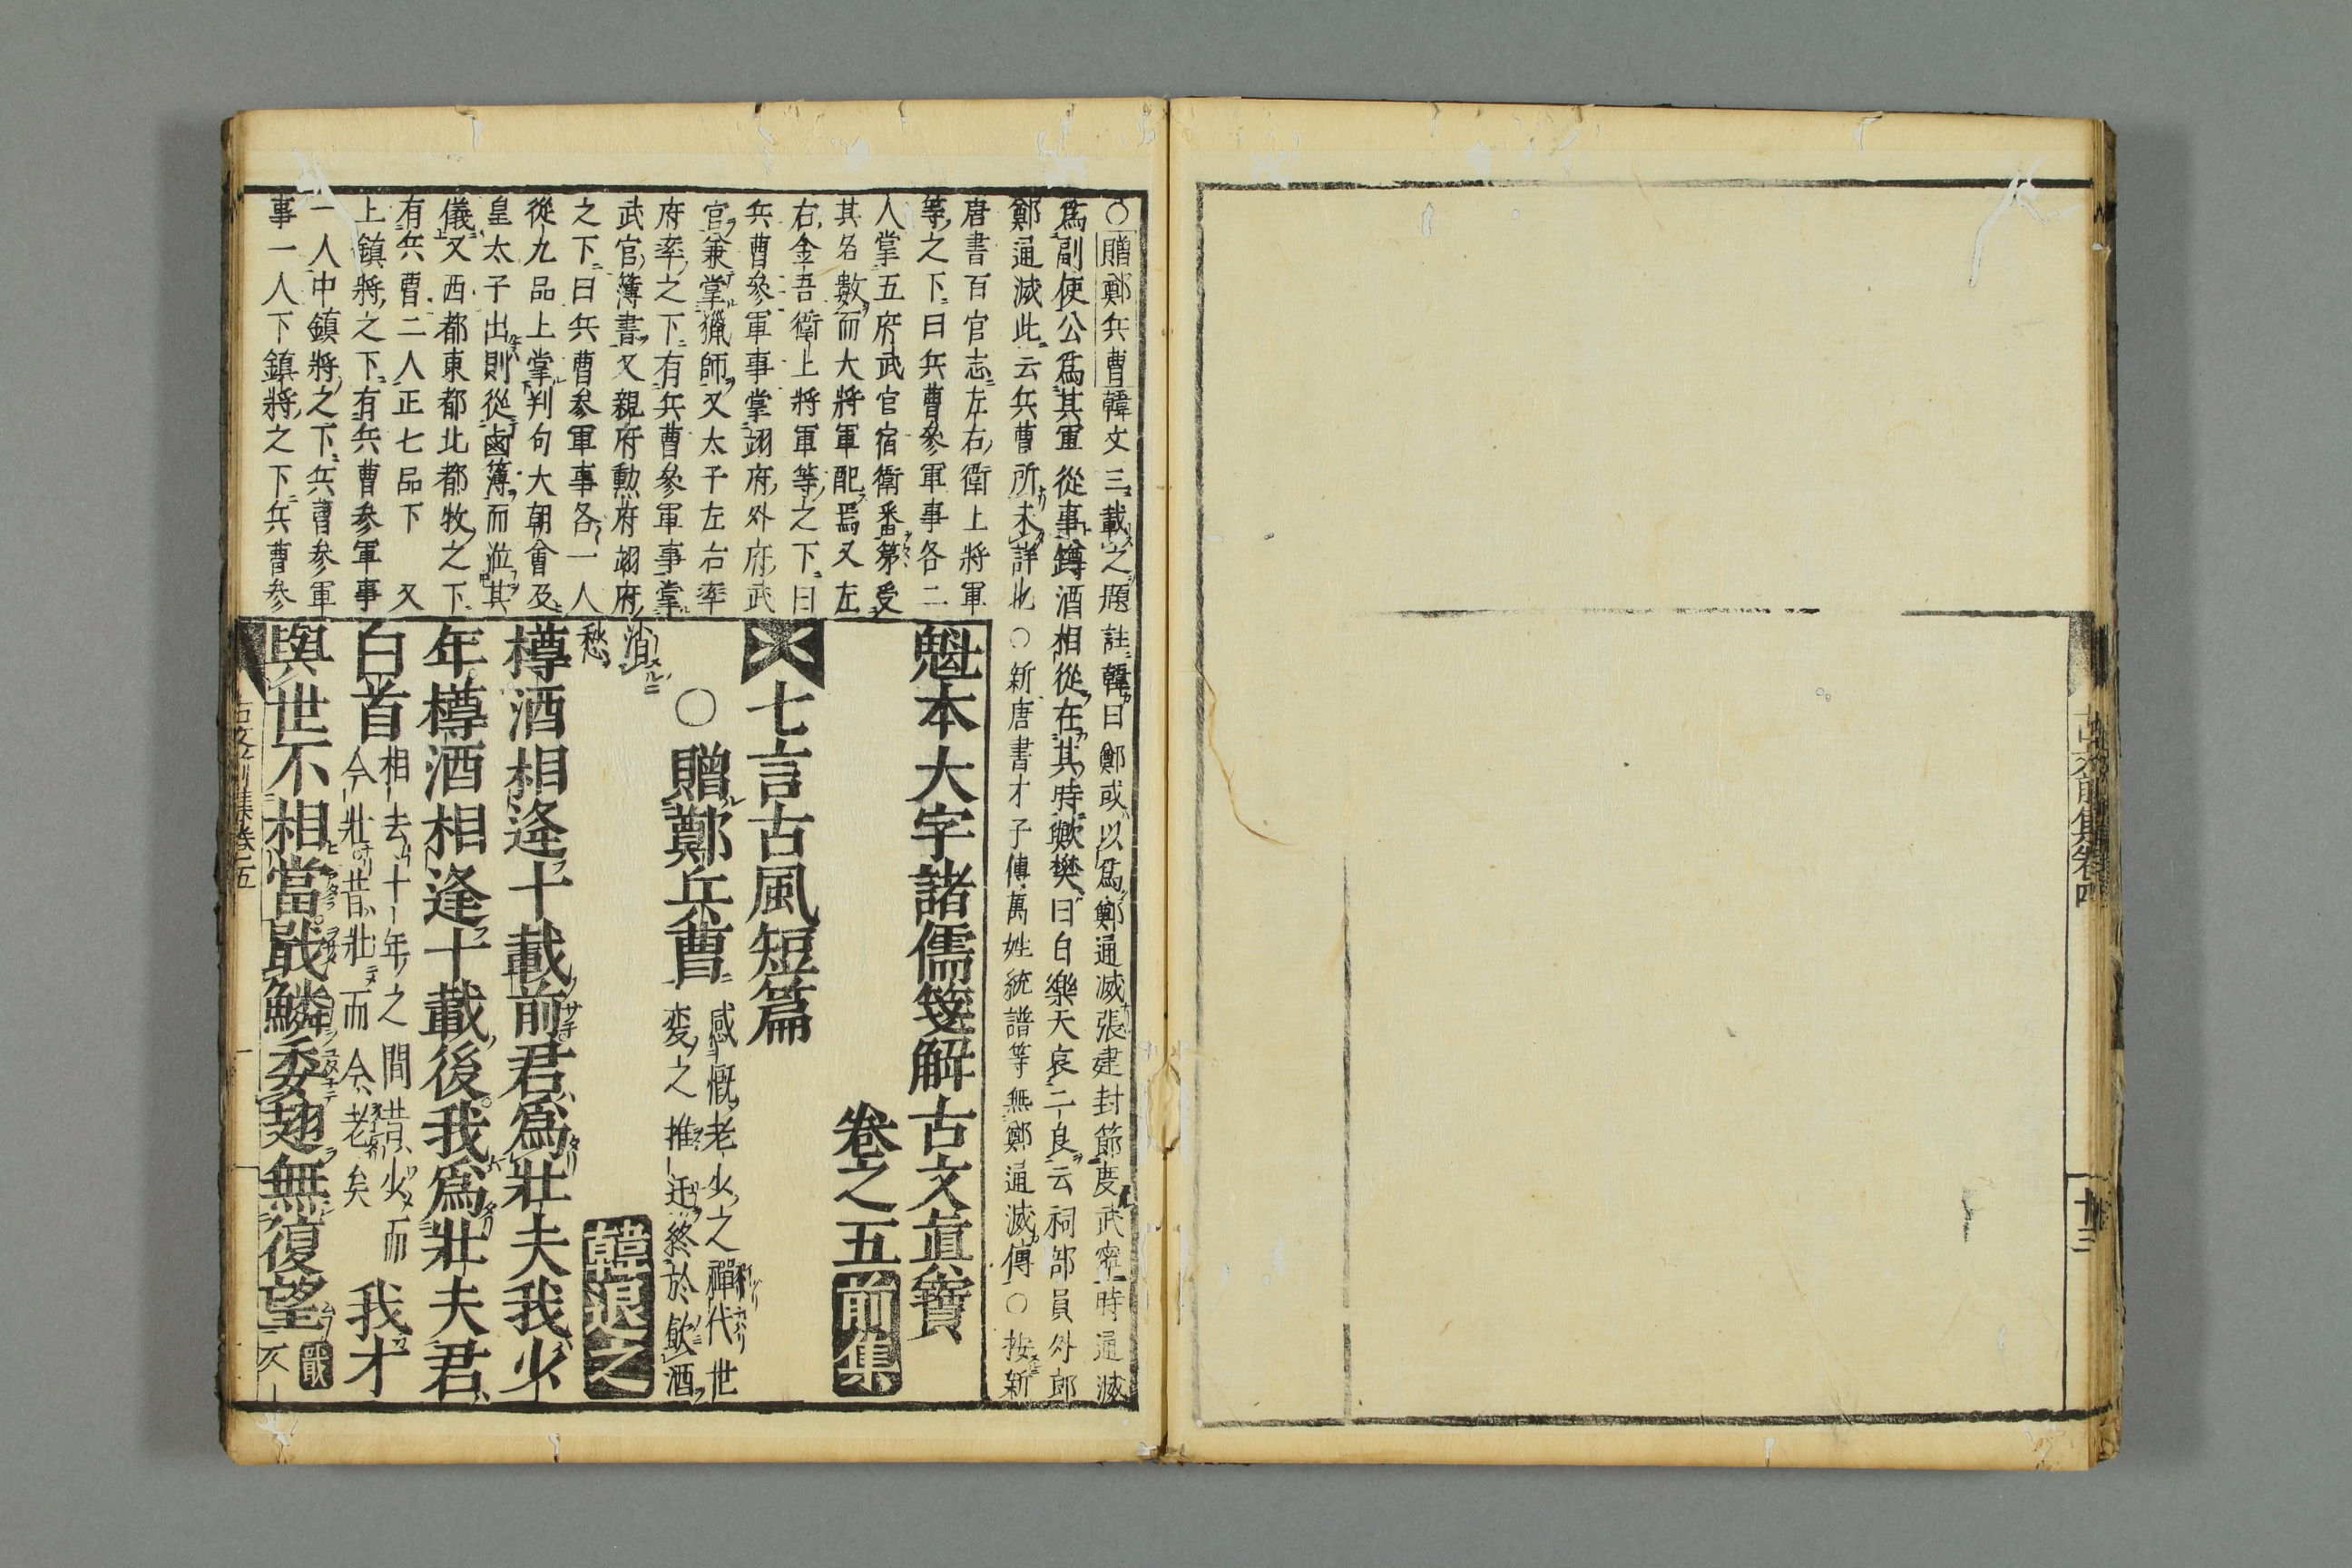 古文前集卷四
十三
○贈鄭兵曹韓文三載之題註韓曰鄭或以爲鄭通滅張建封節度武寧時通滅
爲副使公爲其軍從事罇酒相從在其時歟樊曰白樂天哀二良云祠部員外郎
鄭通滅此云兵曹所未詳也○新唐書才子傳萬姓統譜等無鄭通滅傳○按新
唐書百官志左右衛上將軍
等之下曰兵曹參軍事各二
人掌五府武官宿衛番第受
其名數而大將軍配焉又左
右金吾衛上將軍等之下曰
兵曹參軍事掌翊府外府武
官兼掌獵師又太子左右率
府率之下有兵曹參軍事掌
武官簿書又親府勳府翊府
之下曰兵曹參軍事各一人
從九品上掌判句大朝會及
皇太子出則從鹵簿而涖其
儀又西都東都北都牧之下
有兵曹二人正七品下　又
上鎮將之下有兵曹參軍事
一人中鎮將之下兵曹參軍
事一人下鎮將之下兵曹參
魁本大字諸儒箋解古文眞寶
卷之五前集
七言古風短篇
○贈鄭兵曹 感慨老少之禪代世
変之推迁終於飲酒
消
愁
韓退之
樽酒相逢十載前君爲壯夫我少
年樽酒相逢十載後我爲壯夫君
白首 相去十年之間昔少而
今壯昔壯而今老矣 我才
與世不相當戢鱗委翅無復望 戢
古文前集卷五
一